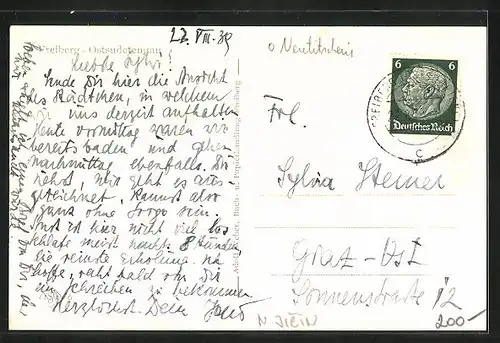 Freiberg - Ostsudetengau
22. VIII. 39
Liebste Sylvi!
Sende Dir hier die Ansicht
des Städtchen, in welchem
wir uns derzeit aufhalten
Heute vormittag waren wir
bereits baden und gehen
nachmittag ebenfalls. Du
siehst, mir geht es aus-
gezeichnet, kannst also
ganz ohne Sorge sein.
Sonst ist hier nicht viel los
schlafe meist nachts 8 Stunden,
die reinste Erholung. Ich
hoffe, recht bald von dir
ein Schreiben zu bekommen
Herzlichst Dein
Buch- u. Papierhandlung, Freiberg
o Neutitschein
6 6
Deutsches Reich
FREIBERG
c
Frl.
Sylvia Steiner
Graz-Ost
Sonnenstrasse 12
N JIČÍN
200-